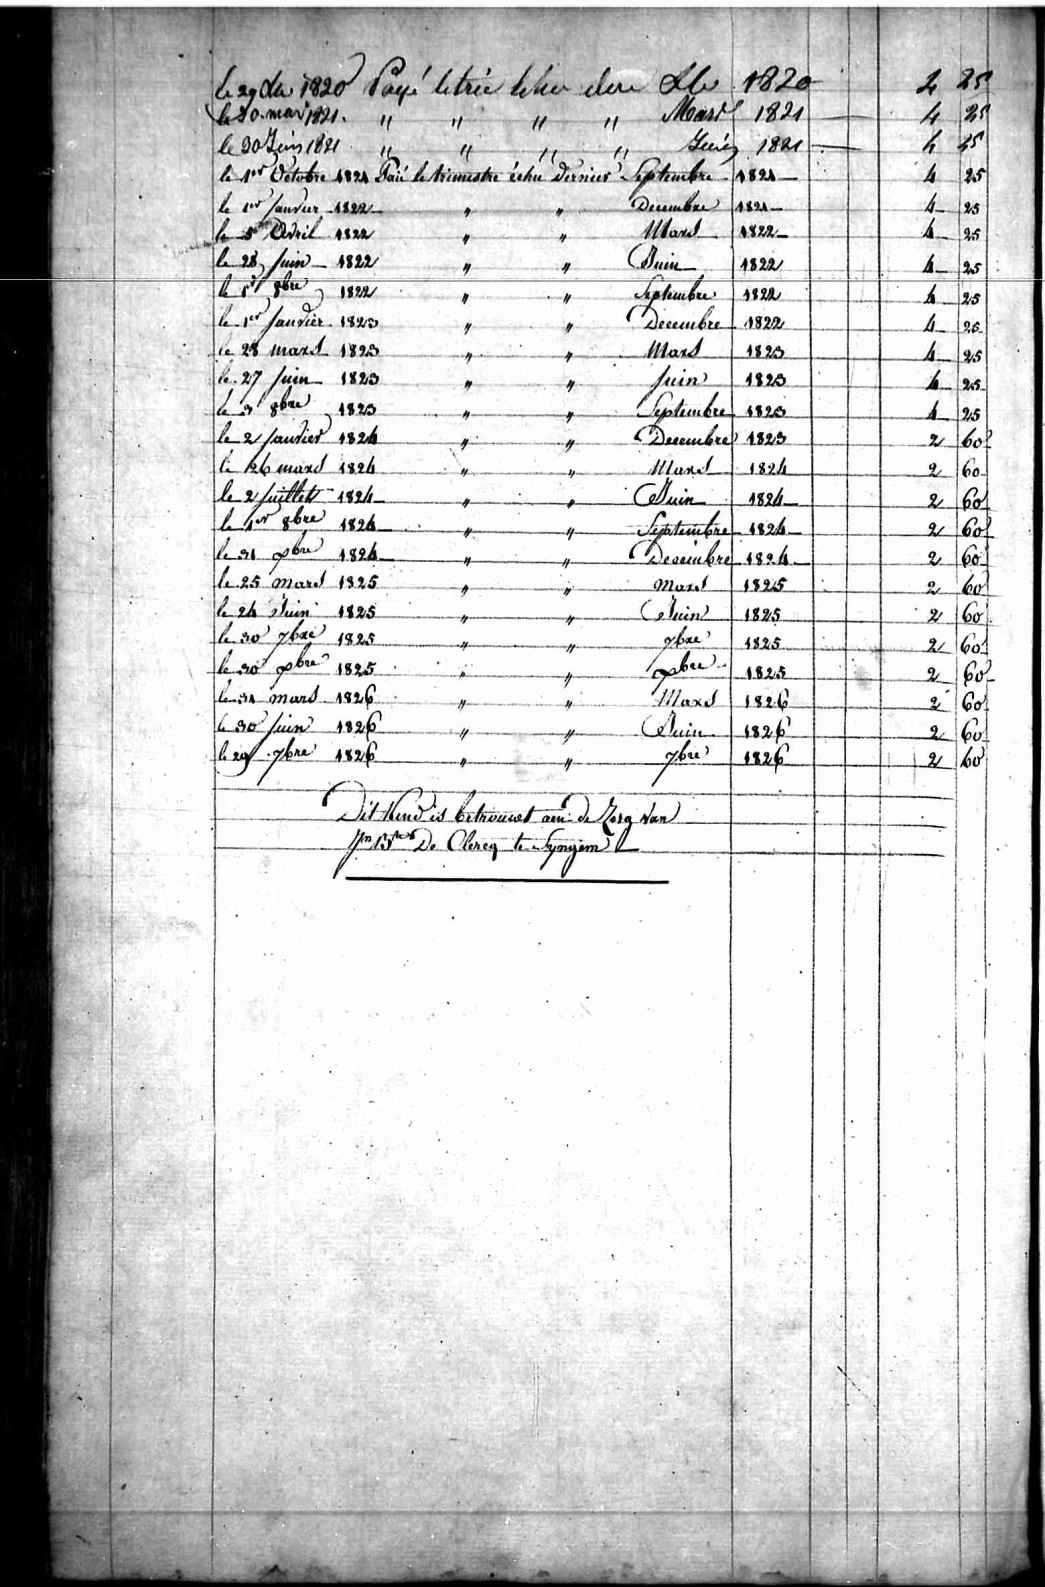 le 29 Xbe 1820 Payé le tri échu dere Xbe 1820 4 25
le 30 mars 1821. " " " " Mars 1821 4 25
le 30 Juin 1821 " " " " Juin 1821 4 25
le 1er Octobre 1821 Paié le trimestre échu dernier Septembre 1821 4 25
le 1er Janvier 1822 " " Decembre 1821 4 25
le 5 Avril 1822 " " Mars 1822 4 25
le 28 Juin 1822 " " Juin 1822 4 25
le 1r 8bre 1822 " " Septembre 1822 4 25
le 1er Janvier 1823 " " Decembre 1822 4 25
le 28 mars 1823 " " Mars 1823 4 25
le 27 Juin 1823 " " Juin 1823 4 25
le 3 8bre 1823 " " Septembre 1823 4 25
le 2 Janvier 1824 " " Decembre 1823 2 60
le 26 mars 1824 " " Mars 1824 2 60
le 2 Juillet 1824 " " Juin 1824 2 60
le 1er 8bre 1824 " " Septembre 1824 2 60
le 31 Xbre 1824 " " Decembre 1824 2 60
le 25 Mars 1825 " " Mars 1825 2 60
le 24 Juin 1825 " " Juin 1825 2 60
le 30 7bre 1825 " " 7bre 1825 2 60
le 30 Xbre 1825 " " Xbre 1825 2 60
le 31 mars 1826 " " Mars 1826 2 60
le 30 Juin 1826 " " Juin 1826 2 60
le 29 7bre 1826 " " 7bre 1826 2 60
Dit Kind is betrouwt aen de Zorg van
De Clercq te Syngem